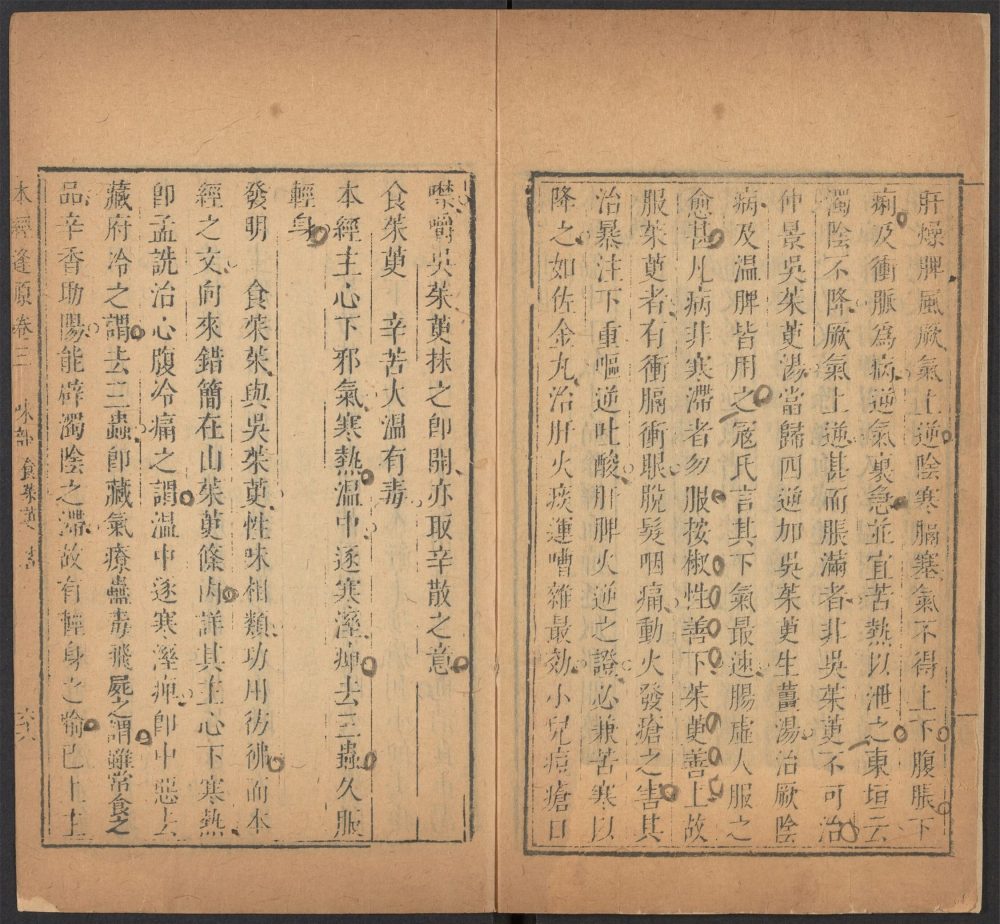 肝燥脾風厥氣上逆陰寒膈塞氣不得上下腹脹下
痢及衝脈為病逆氣裏急並宜苦熱以泄之東垣云
濁陰不降厥氣上逆甚而脹滿者非吳茱萸不可治
仲景吳茱萸湯當歸四逆加吳茱萸生薑湯治厥陰
病及溫脾皆用之寇氏言其下氣最速腸虛人服之
愈甚凡病非寒滯者勿服按椒性善下茱萸善上故
服茱萸者有衝膈衝眼脫髮咽痛動火發瘡之害其
治暴注下重嘔逆吐酸肝脾火逆之證必兼苦寒以
降之如佐金丸治肝火痰運嘈雜最効小兒痘瘡口
噤嚼吳茱萸抹之卽開亦取辛散之意
食茱萸 辛苦大溫有毒
本經主心下邪氣寒熱溫中逐寒溼痺去三蟲久服
輕身
發明 食茱萸與吳茱萸性味相類功用彷彿而本
經之文向來錯簡在山茱萸條內詳其主心下寒熱
卽孟詵治心腹冷痛之謂溫中逐寒溼痺卽中惡去
藏府冷之謂去三蟲卽藏氣療蠱毒飛屍之謂雖常食之
品辛香助陽能辟濁陰之滯故有輕身之喻已上主
本經逢原卷三 味部 食茱萸